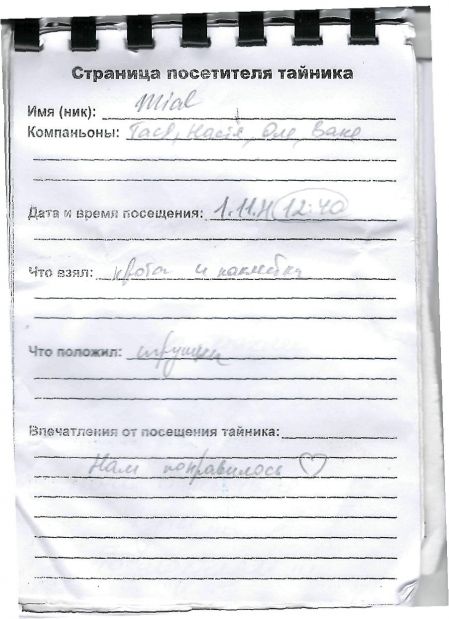 Страница посетителя тайника
Имя (ник): Mial
Компаньоны: Тася, Настя, Оле, Ваке
Дата и время посещения: 1.11.11 12:40
Что взял: крота и наклейки
Что положил: игрушки
Впечатления от посещения тайника:
Нам понравилось ♡